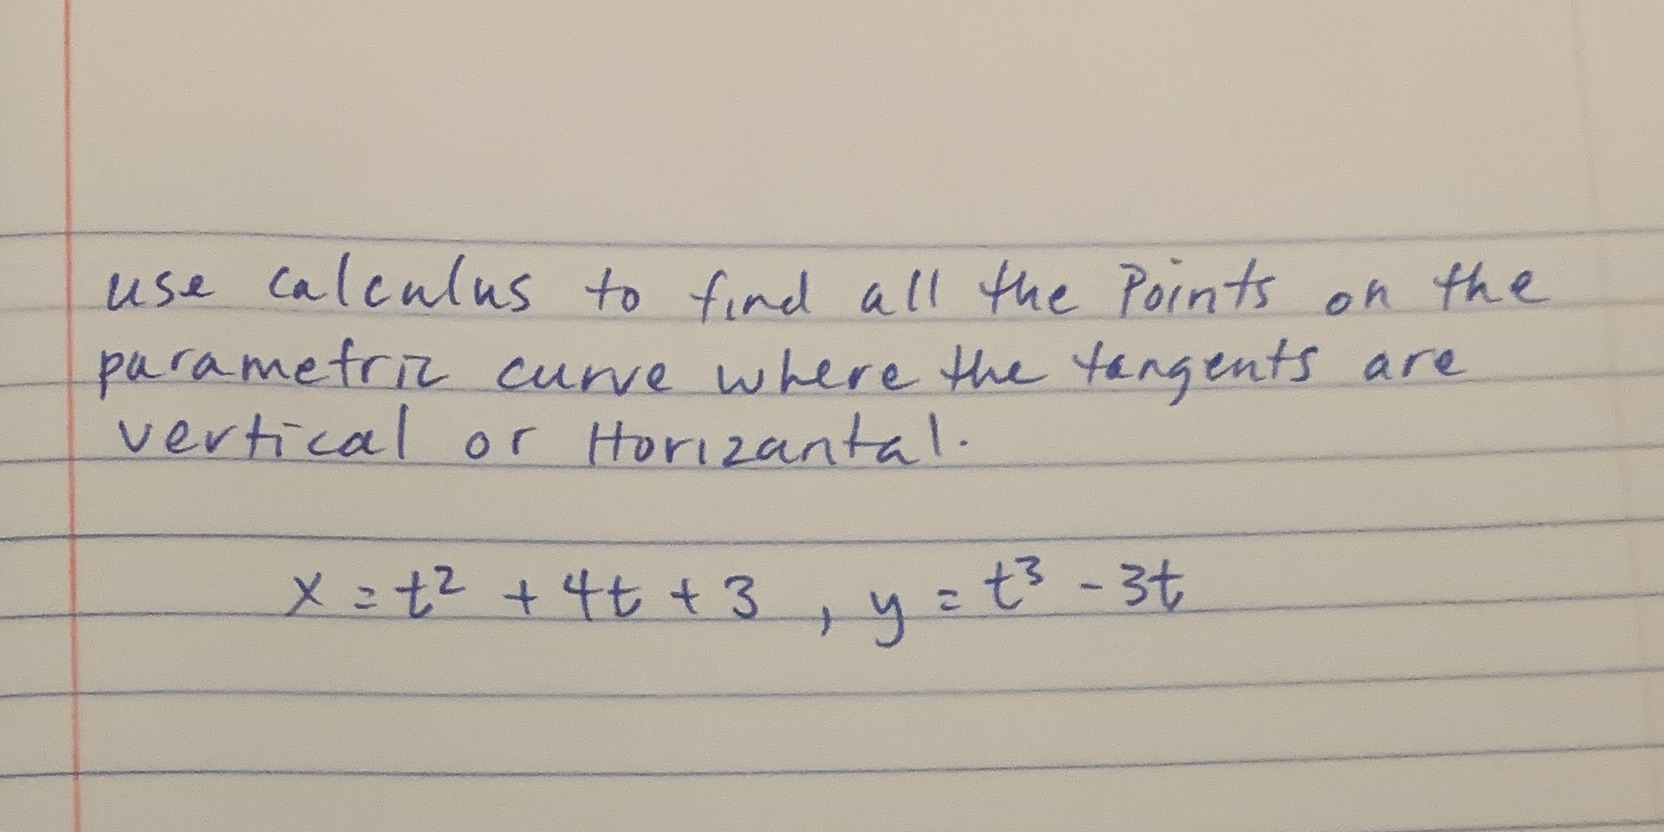 use calculus to find all the Points on the
parametric curve where the tangents are
vertical or Horizantal.
x = t² + 4t + 3 , y = t³ - 3t